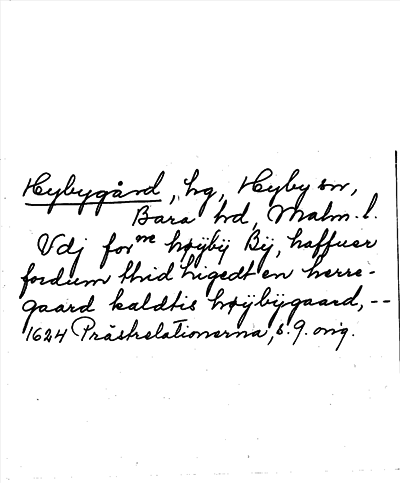 Hybygård, hg, Hyby sn,
Bara hd, Malm. l.
Vdj for^ne høÿbÿ Bÿ, haffuer
fordum thid ligedt en herre-
gaard kaldtis høÿbÿgaard, --
1624 Prästrelationerna, s. 9. orig.